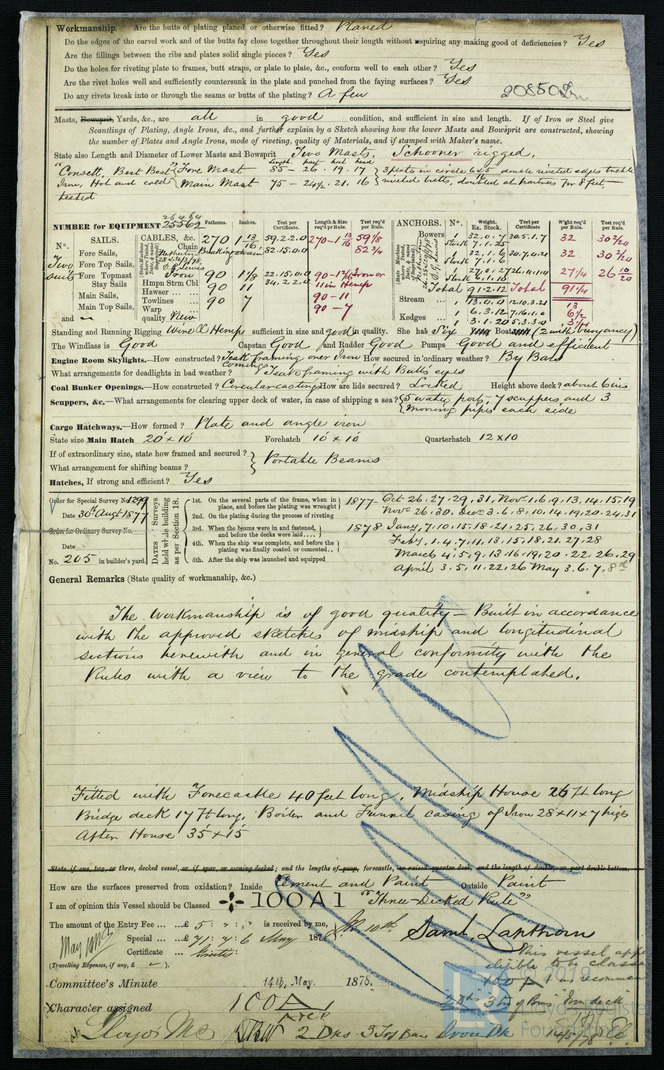 Workmanship. Are the butts of plating planed or otherwise fitted? Planed
Do the edges of the carvel work and of the butts fay close together throughout their length without requiring any making good of deficiencies? Yes
Are the fillings between the ribs and plates solid single pieces? Yes
Do the holes for riveting plate to frames, butt straps, or plate to plate, &c., conform well to each other? Yes
Are the rivet holes well and sufficiently countersunk in the plate and punched from the faying surfaces? Yes
Do any rivets break into or through the seams or butts of the plating? A few
20850
Masts, Bowsprit, Yards, &c., are all in good condition, and sufficient in size and length. If of Iron or Steel give
Scantlings of Plating, Angle Irons, &c., and further explain by a Sketch showing how the lower Masts and Bowsprit are constructed, showing
the number of Plates and Angle Irons, mode of riveting, quality of Materials, and if stamped with Maker's name.
State also Length and Diameter of Lower Masts and Bowsprit Two Masts, Schooner rigged.
"Consett, Best Best" Fore Mast 85 - 26 . 19 . 17 3 plates in circle double riveted edges treble
Iron, Hot and cold Main Mast 75 - 24½ . 21 . 16 riveted butts, doubled at partners for 8 feet
tested
NUMBER for EQUIPMENT 25562
Fathoms. Inches. Test per Certificate. Length & Size req'd per Rule. Test req'd per Rule.
ANCHORS. Nº. Weight. Ex. Stock. Test per Certificate. Weight req'd per Rule. Test req'd per Rule.
Nº. SAILS. CABLES, &c.
Two suits
Fore Sails,
Fore Top Sails,
Fore Topmast Stay Sails
Main Sails,
Main Top Sails,
and
Chain 270 1 13/16 59.2.2.0 270-1 13/16 59 1/8
82.15.0.0 82 3/4
Iron 90 1 1/8 22.15.0.0
Hmpn Strm Cbl 90 11 11 in Hemp
Hawser 90-11
Towlines 90 7 90-7
Warp
quality New
Bowers 1 32.0.7 30.5.1.7 32
1 32.1.6 30.7.0.21 32
1 27.0.27 27¼
Total 91.2.12 Total 91¼
Stream 1 13.0.0 12.10.3.21 13
Kedges 1 6.3.12 6½
1 3.1.20 3¼
Standing and Running Rigging Wire & Hemp sufficient in size and good in quality. She has Six Boats (2 with buoyancy)
The Windlass is Good Capstan Good and Rudder Good Pumps Good and efficient
Engine Room Skylights.—How constructed? Teak framing over Iron Comings How secured in ordinary weather? By Bars
What arrangements for deadlights in bad weather? Teak framing with Bulls eyes
Coal Bunker Openings.—How constructed? Circular castings How are lids secured? Locked Height above deck? about 6 ins
Scuppers, &c.—What arrangements for clearing upper deck of water, in case of shipping a sea? 5 water ports - 7 scuppers, and 3
mooring pipes each side
Cargo Hatchways.—How formed? Plate and angle iron
State size Main Hatch 20 x 10 Forehatch 10 x 10 Quarterhatch 12 x 10
If of extraordinary size, state how framed and secured?
What arrangement for shifting beams? Portable Beams
Hatches, If strong and efficient? Yes
Order for Special Survey No. 1299
Date 30th Augt 1877
Order for Ordinary Survey No.
Date
No. 205 in builder's yard.
DATES of Surveys held while building as per Section 18.
1st. On the several parts of the frame, when in place, and before the plating was wrought
2nd. On the plating during the process of riveting
3rd. When the beams were in and fastened, and before the decks were laid....
4th. When the ship was complete, and before the plating was finally coated or cemented..
5th. After the ship was launched and equipped
1877 Oct 26. 27. 29. 31, Nov. 1. 6. 9. 13. 14. 15. 19
Nov. 26. 30. Dec 3. 6. 8. 10. 14. 19. 20. 24. 31
1878 Jany, 7. 10. 15. 18. 21. 25. 26. 30. 31
Feby 1. 4. 7. 11. 13. 15. 18. 21. 27. 28
March 4. 5. 9. 13. 16. 19. 20. 22. 26. 29
April 3. 5. 11. 22. 26 May 3. 6. 7. 8th
General Remarks (State quality of workmanship, &c.)
The Workmanship is of good quality — Built in accordance
with the approved sketches of midship and longitudinal
sections herewith and in general conformity with the
Rules with a view to the grade contemplated.
Fitted with Forecastle 40 feet long, Midship House 26 ft long
Bridge deck 17 ft long, Boiler and Funnel casing of Iron 28 x 11 x 7 high
After House 35 x 15
State if one, two or three, decked vessel, or if spar, or awning decked; and the lengths of poop, forecastle, or raised quarter deck, and the length of double, or part double bottom.
How are the surfaces preserved from oxidation? Inside Cement and Paint Outside Paint
I am of opinion this Vessel should be Classed 100 A 1 "Three-Decked Rule"
The amount of the Entry Fee ... £ 5 : " : " is received by me,
Special ... £ 71 : 7 : 6 May 187
Certificate ...
(Travelling Expenses, if any, £ ).
Saml. Lapthorn
This vessel app
eligible to be classed
100 A 1 as recomm
Committee's Minute 14th May. 1878.
Character assigned 100 A
Lloyds MC 2 Dks
14/5/78